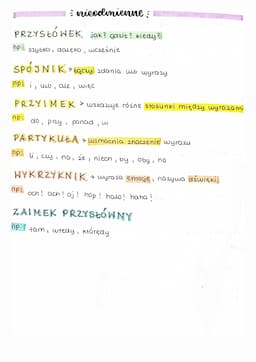 nieodmienne:
PRZYSŁÓWEK jak? gdzie? kiedy?
np: szybko, daleko, wcześnie
SPÓJNIK → łączy zdania lub wyrazy
np: i, lub, ale, więc
PRZYIMEK → wskazuje różne stosunki między wyrazami
np: do, przy, ponad, w
PARTYKUŁA → wzmacnia znaczenie wyrazu
np: li, czy, no, że, niech, by, oby, no
WYKRZYKNIK → wyraża emocje, nazywa dźwięki
np: och! ach! oj! hop! halo! haha!
ZAIMEK PRZYSŁÓWNY
np: tam, wtedy, którędy